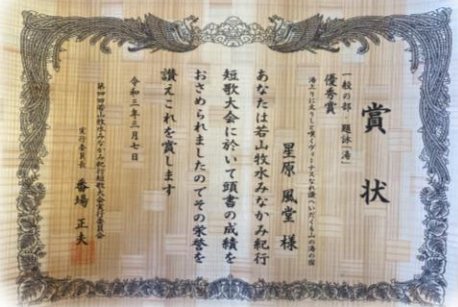 賞状
一般の部・題詠「湯」
優秀賞
星原 風堂 様
あなたは若山牧水みなかみ紀行
短歌大会に於いて頭書の成績を
おさめられましたのでその栄誉を
讃えこれを賞します
令和三年三月七日
第四回若山牧水みなかみ紀行短歌大会実行委員会
実行委員長 番場 正夫